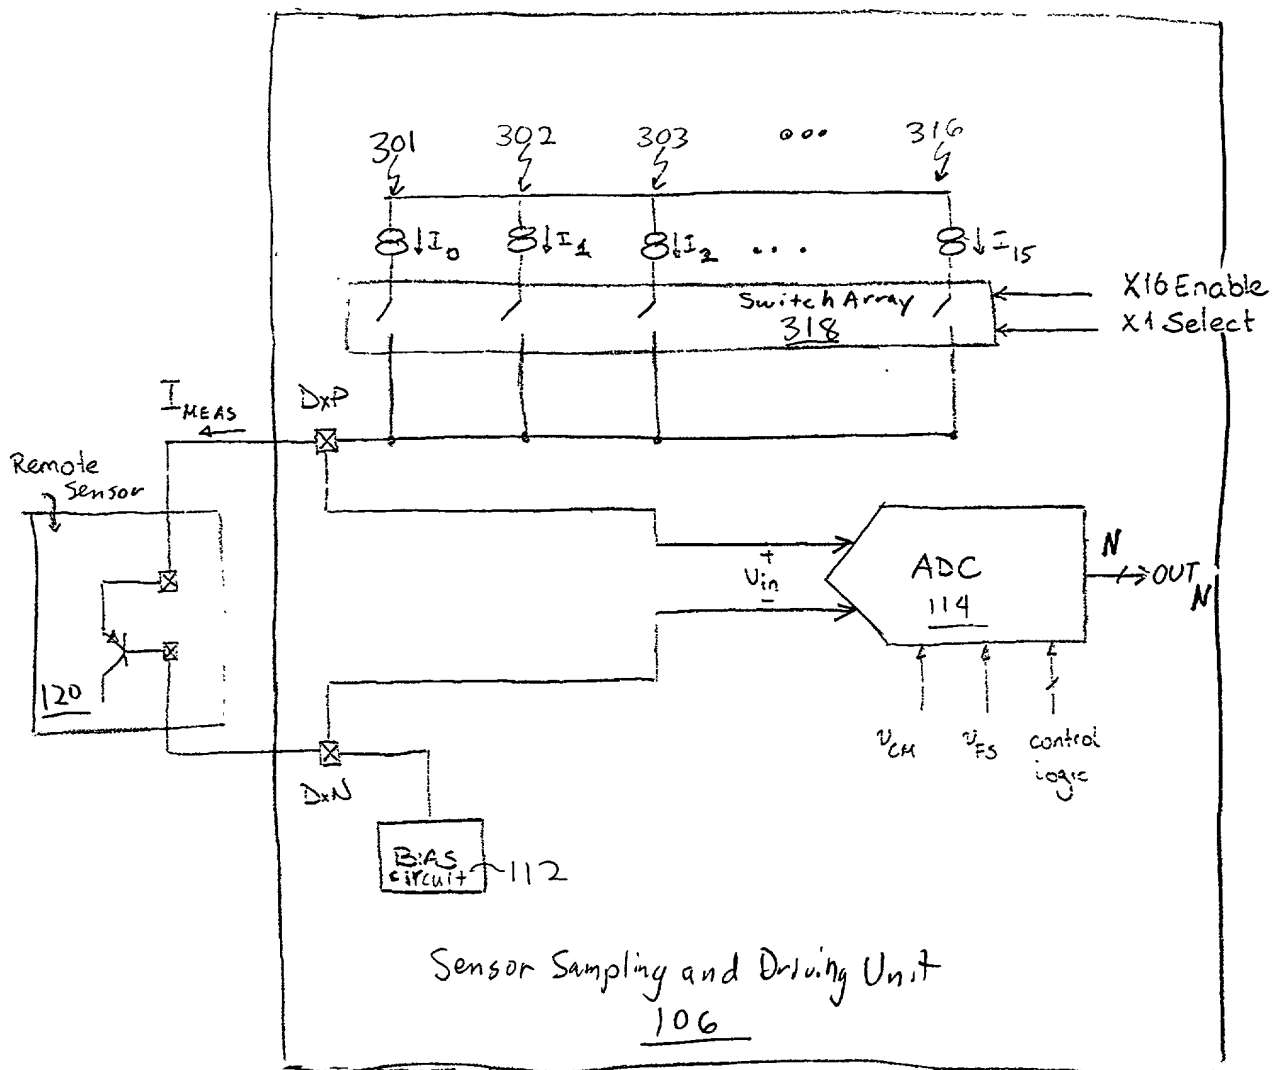 301 302 303 ••• 316
I0 I1 I2 ... I15
Switch Array
318
X16 Enable
X1 Select
IMEAS
DxP
Remote
Sensor
120
+
Vin
−
ADC
114
N
OUTN
VCM VFS control
logic
DxN
BIAS
circuit
112
Sensor Sampling and Driving Unit
106